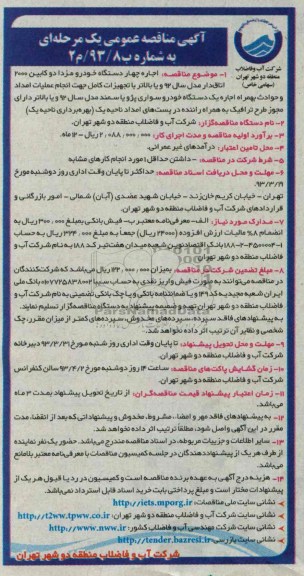 آگهی مناقصه عمومی یک مرحله‌ای
به شماره ب/۹۳/۸/م۲
شرکت آب و فاضلاب
منطقه دو شهر تهران
(سهامی خاص)
۱- موضوع مناقصه: اجاره چهار دستگاه خودرو مزدا دو کابین ۲۰۰۰
اتاقدار مدل سال ۹۲ و یا بالاتر با تجهیزات کامل جهت انجام عملیات امداد
و حوادث بهمراه اجاره یک دستگاه خودرو سواری پژو یا سمند مدل سال ۹۲ و یا بالاتر دارای
مجوز طرح ترافیک به همراه راننده در پست‌های امداد ناحیه یک (بهره‌برداری ناحیه یک)
۲- نام دستگاه مناقصه‌گزار: شرکت آب و فاضلاب منطقه دو شهر تهران.
۳- برآورد اولیه مناقصه و مدت اجرای کار: ۲,۰۸۸,۰۰۰,۰۰۰ ریال - ۱۲ ماه.
۴- محل تامین اعتبار: درآمدهای غیر عمرانی.
۵- شرط شرکت در مناقصه: - داشتن حداقل ۱ مورد انجام کارهای مشابه
۶- مهلت و محل دریافت اسناد مناقصه: حداکثر تا پایان وقت اداری روز دوشنبه مورخ
۹۳/۳/۱۹
تهران - خیابان کریم خان زند - خیابان شهید عضدی (آبان) شمالی - امور بازرگانی و
قراردادهای شرکت آب و فاضلاب منطقه دو شهر تهران.
۷- مدارک مورد نیاز: الف- معرفی‌نامه معتبر ب- فیش بانکی بمبلغ ۳۰۰,۰۰۰ ریال به
انضمام ۸٪ مالیات ارزش افزوده (۲۴۰۰۰ ریال) جمعاً به مبلغ ۳۲۴,۰۰۰ ریال به حساب
بانک اقتصاد نوین شعبه میدان هفت تیر کد ۱۸۸ به نام شرکت آب و
فاضلاب منطقه دو شهر تهران.
۸- مبلغ تضمین شرکت در مناقصه: بمیزان ریال می‌باشد که شرکت‌کنندگان
در مناقصه می‌توانند به صورت فیش واریز نقدی به حساب سیبا بانک ملی
ایران شعبه جدید کد و یا ضمانتنامه بانکی و یا چک بانکی تضمینی به نام شرکت آب و
فاضلاب منطقه دو شهر تهران تهیه و ضمیمه پیشنهاد به دستگاه مناقصه‌گزار تسلیم نمایند.
به پیشنهادهای فاقد سپرده، سپرده‌های مخدوش، سپرده‌های کمتر از میزان مقرر، چک
شخصی و نظایر آن ترتیب اثر داده نخواهد شد.
۹- مهلت و محل تحویل پیشنهاد: تا پایان وقت اداری روز شنبه مورخ ۹۳/۳/۳۱ دبیرخانه
شرکت آب و فاضلاب منطقه دو شهر تهران.
۱۰- زمان گشایش پاکت‌های مناقصه: ساعت ۱۴ روز دوشنبه مورخ ۹۳/۴/۲ سالن کنفرانس
شرکت آب و فاضلاب منطقه دو شهر تهران.
۱۱- زمان اعتبار پیشنهاد قیمت مناقصه‌گران: از تاریخ تحویل پیشنهاد بمدت ۳ ماه
می‌باشد.
۱۲- به پیشنهادهای فاقد مهر و امضا، مشروط، مخدوش و پیشنهاداتی که بعد از انقضا مدت
مقرر در این آگهی واصل شود، مطلقاً ترتیب اثر داده نخواهد شد.
۱۳- سایر اطلاعات و جزییات مربوطه، در اسناد مناقصه مندرج می‌باشد. حضور یک نفر نماینده
از طرف هر یک از پیشنهاددهندگان در جلسه کمیسیون مناقصات با معرفی‌نامه معتبر بلامانع
می‌باشد.
۱۴- هزینه درج آگهی به عهده برنده مناقصه است و کمیسیون در رد یا قبول هر یک از
پیشنهادات مختار است و مبلغ پرداختی بابت خرید اسناد قابل استرداد نمی‌باشد.
نشانی سایت ملی مناقصات: http://iets.mporg.ir
نشانی سایت شرکت آب و فاضلاب منطقه دو شهر تهران: http://t2ww.tpww.co.ir
نشانی سایت شرکت مهندسی آب و فاضلاب کشور: http://www.nww.ir
نشانی سایت بازرسی: http://tender.bazresi.ir
شرکت آب و فاضلاب منطقه دو شهر تهران